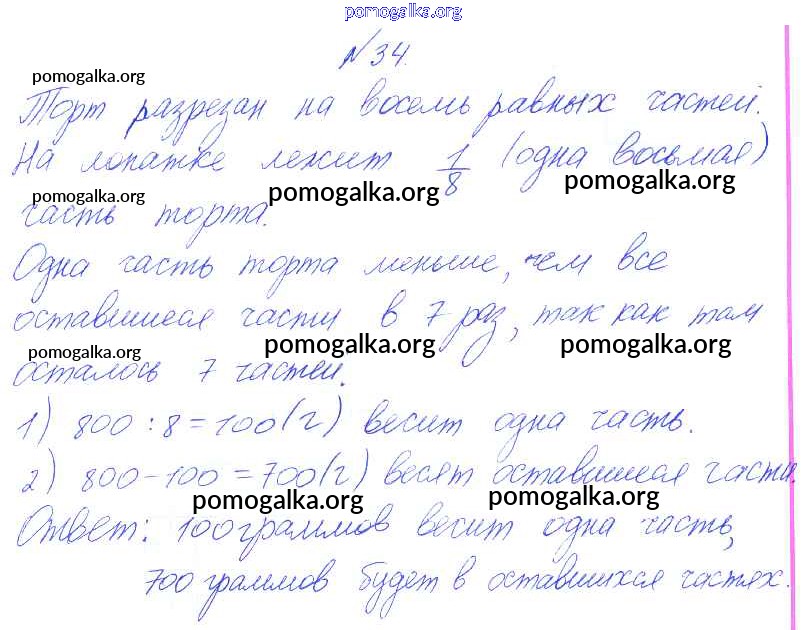 pomogalka.org
№34.
pomogalka.org
Торт разрезан на восемь равных частей.
На лопатке лежит 1/8 (одна восьмая)
pomogalka.org pomogalka.org pomogalka.org
часть торта.
Одна часть торта меньше, чем все
оставшиеся части в 7 раз, так как там
pomogalka.org pomogalka.org pomogalka.org
осталось 7 частей.
1) 800 : 8 = 100 (г) весит одна часть.
2) 800 - 100 = 700 (г) весят оставшиеся части.
pomogalka.org pomogalka.org
Ответ: 100 граммов весит одна часть,
700 граммов будет в оставшихся частях.